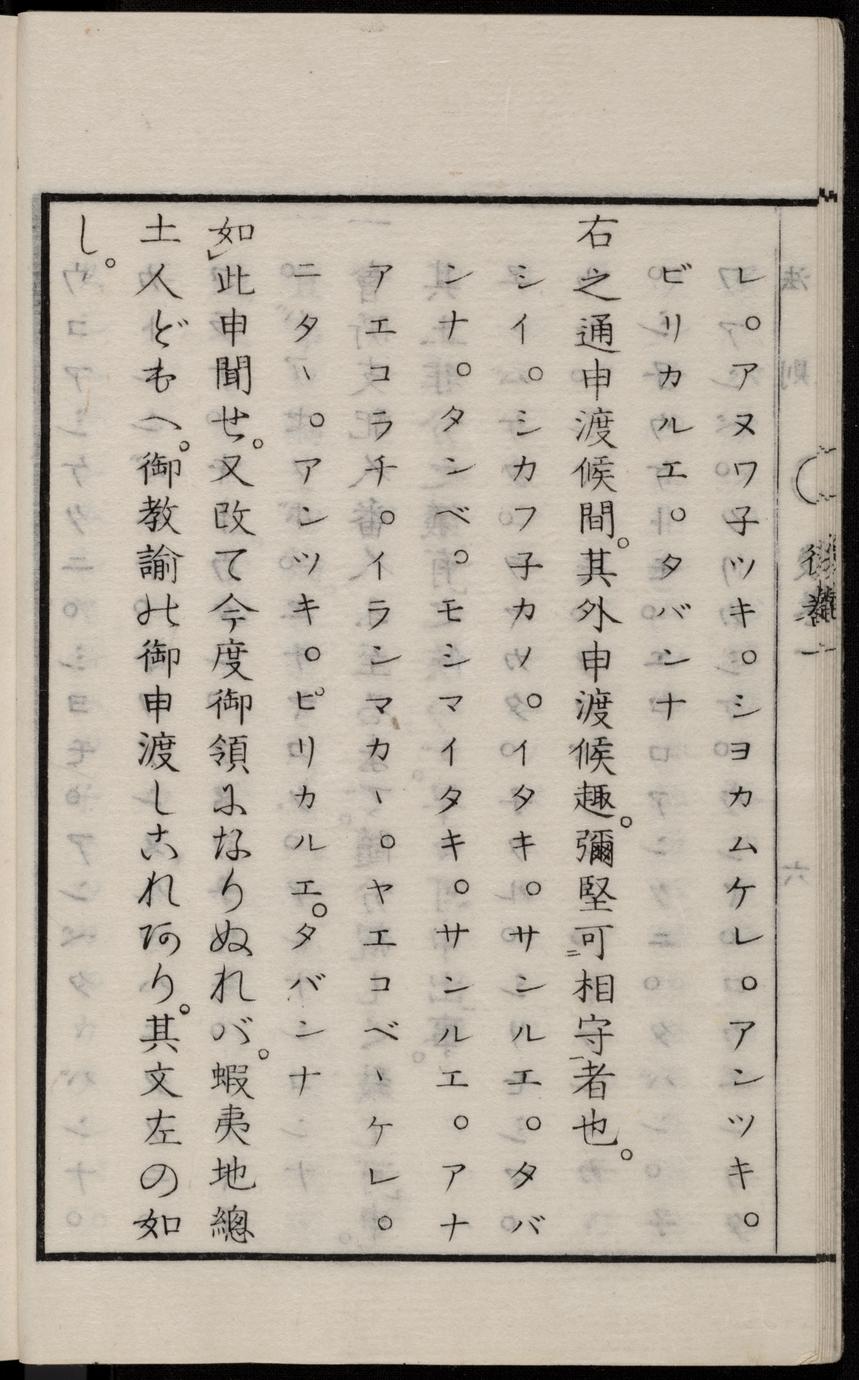 レ。アヌワ子ツキ。シヨカムケレ。アンツキ。
ビリカルエ。タバンナ
右之通申渡候間。其外申渡候趣。彌堅可相守者也。
シイ。シカフ子カノ。イタキ。サンルエ。タバ
ンナ。タンベ。モシマイタキ。サンルエ。アナ
アエコラチ。イランマカヽ。ヤエコベヽケレ。
ニタヽ。アンツキ。ピリカルエ。タバンナ
如此申聞せ。又改て今度御領になりぬれバ。蝦夷地總
土人どもへ。御教諭の御申渡しこれあり。其文左の如
し。